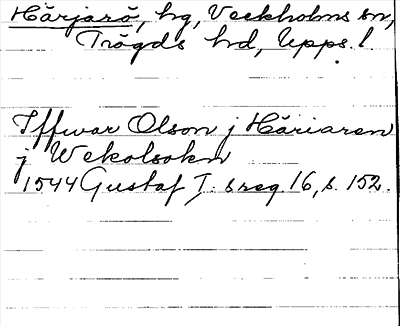 Härjarö, hg, Veckholms sn,
Trögds hd, Upps. l.
Iffwar Olson j Häriaren
j Wekolsokn
1544 Gustaf I. s reg. 16, s. 152.